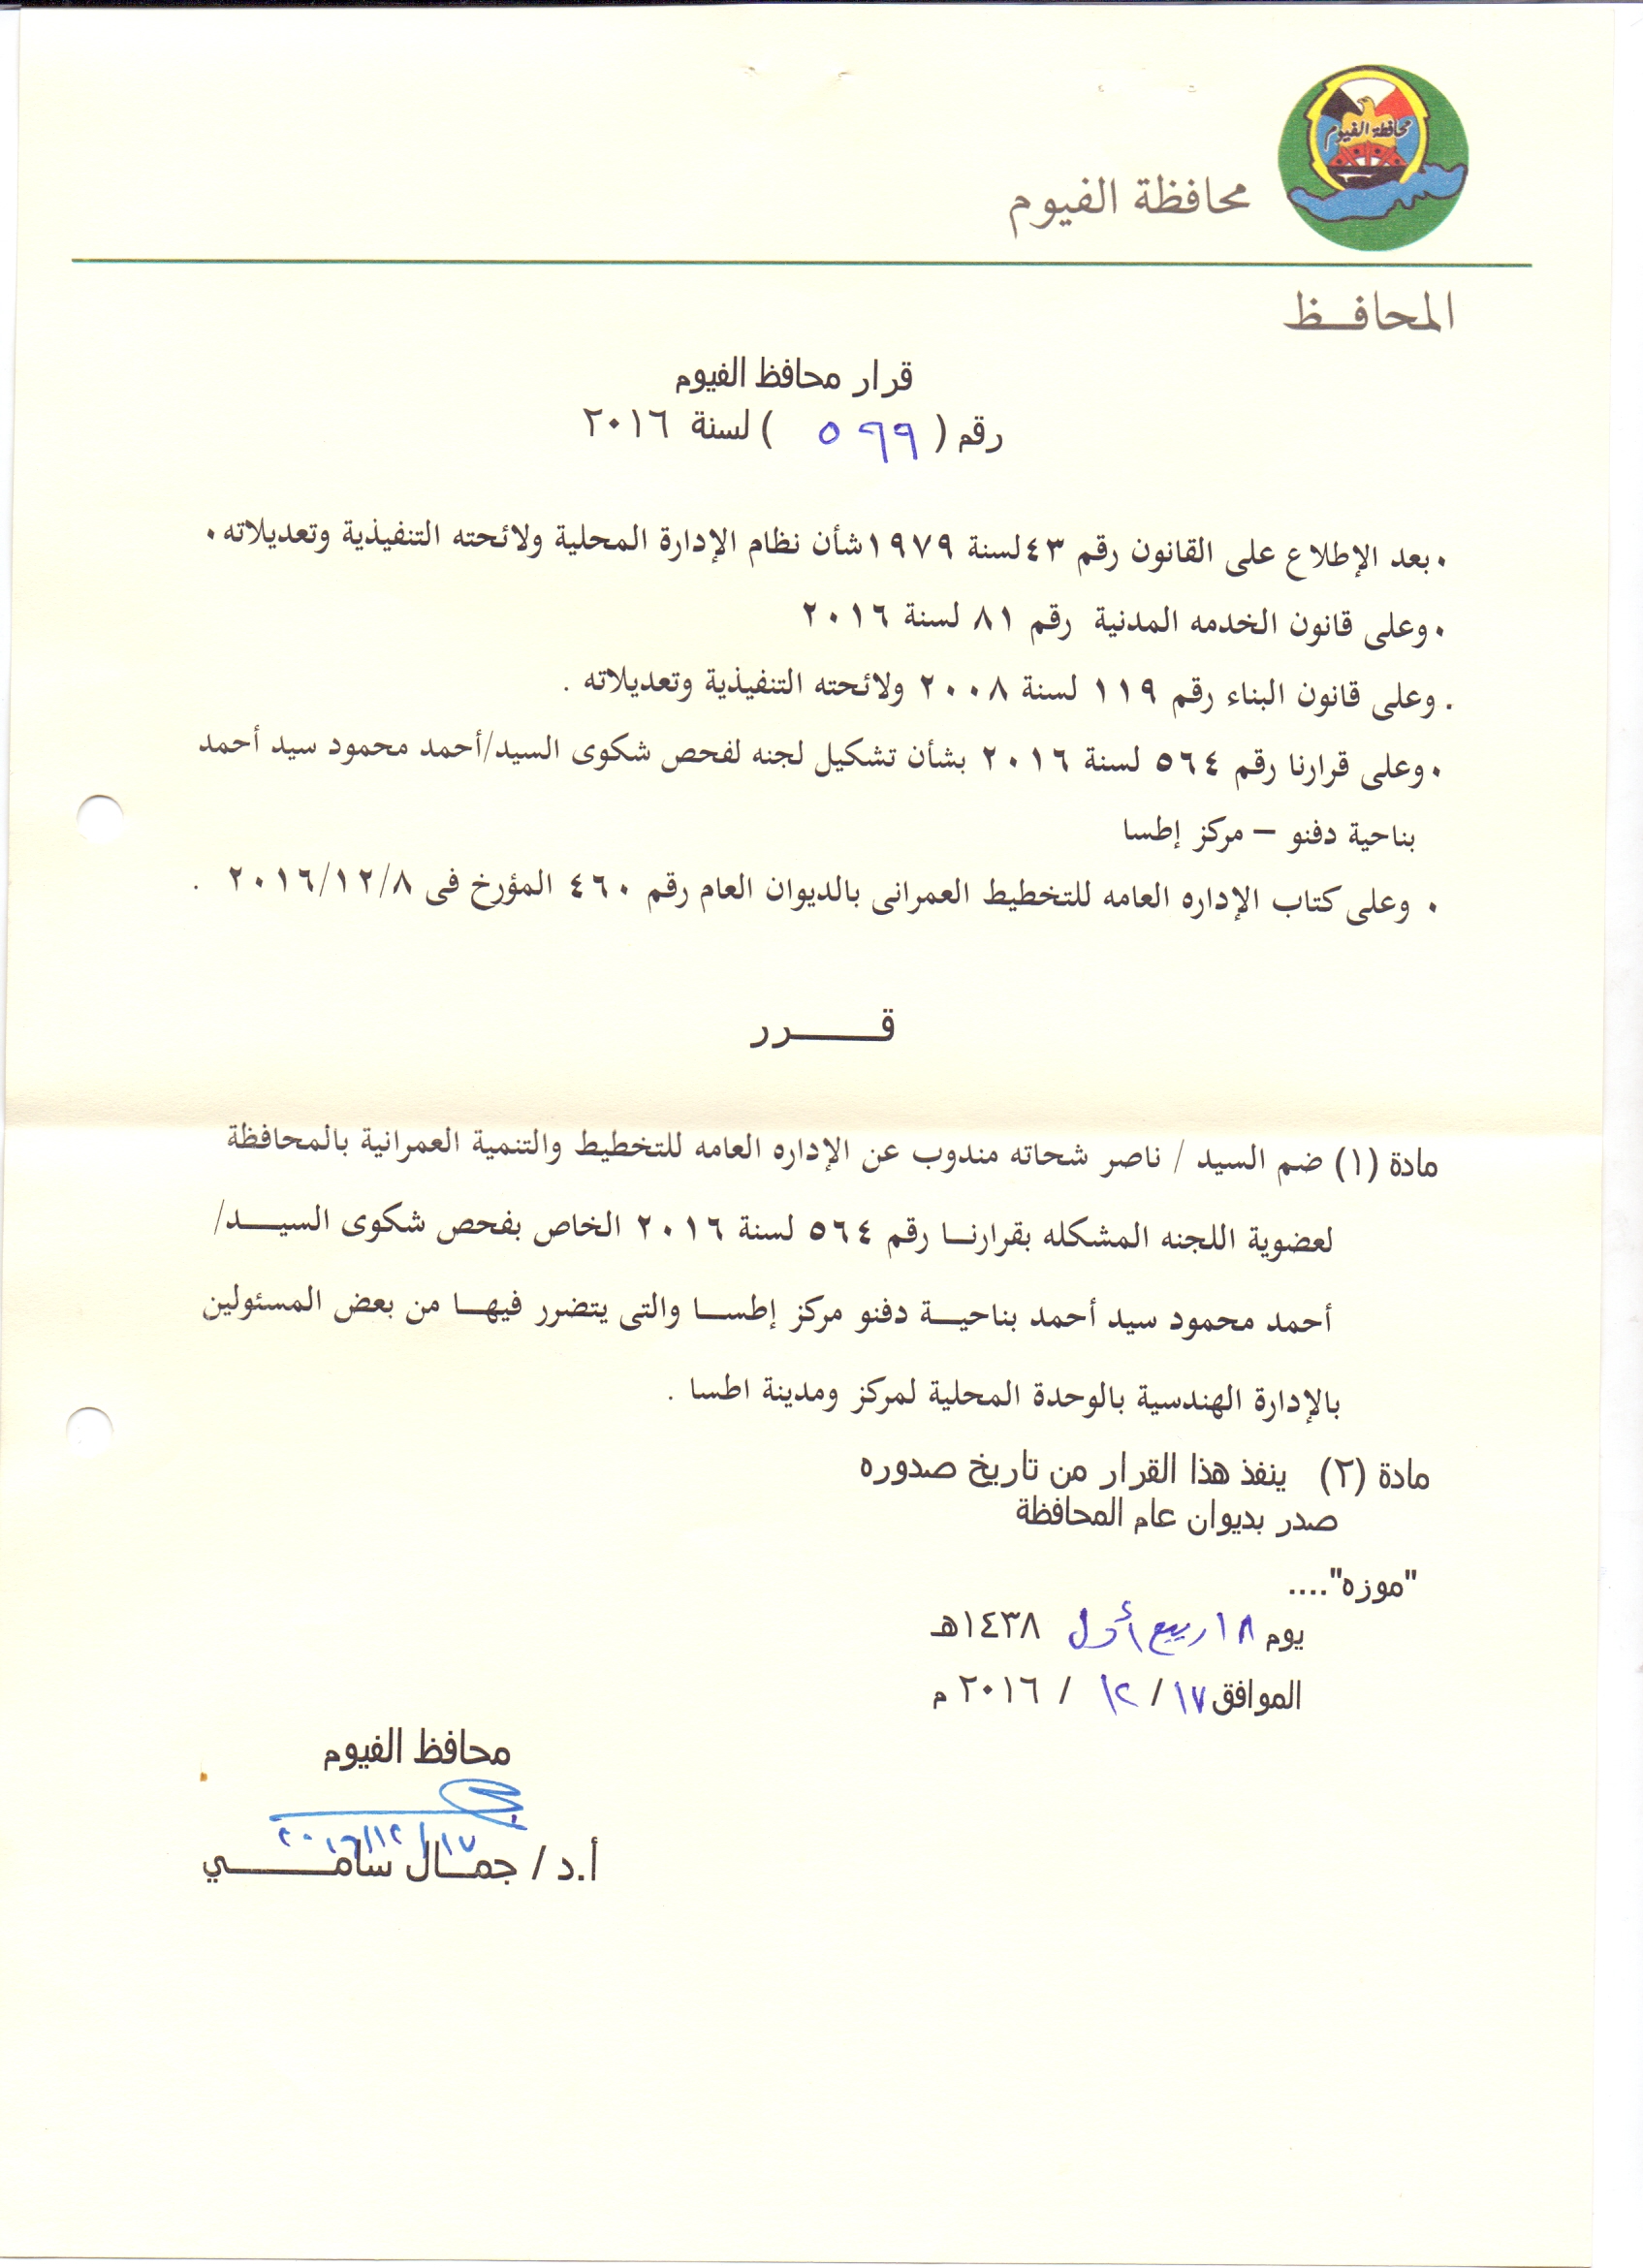 محافظة الفيوم
محافظة الفيوم
المحافــظ
قرار محافظ الفيوم
رقم ( ٥٩٩ ) لسنة ٢٠١٦
٠ بعد الإطلاع على القانون رقم ٤٣ لسنة ١٩٧٩ شأن نظام الإدارة المحلية ولائحته التنفيذية وتعديلاته ٠
٠ وعلى قانون الخدمه المدنية رقم ٨١ لسنة ٢٠١٦
. وعلى قانون البناء رقم ١١٩ لسنة ٢٠٠٨ ولائحته التنفيذية وتعديلاته .
٠ وعلى قرارنا رقم ٥٦٤ لسنة ٢٠١٦ بشأن تشكيل لجنه لفحص شكوى السيد/أحمد محمود سيد أحمد
بناحية دفنو – مركز إطسا
٠ وعلى كتاب الإداره العامه للتخطيط العمرانى بالديوان العام رقم ٤٦٠ المؤرخ فى ٢٠١٦/١٢/٨ .
قـــــــرر
مادة (١) ضم السيد / ناصر شحاته مندوب عن الإداره العامه للتخطيط والتنمية العمرانية بالمحافظة
لعضوية اللجنه المشكله بقرارنــا رقم ٥٦٤ لسنة ٢٠١٦ الخاص بفحص شكوى السيــــد/
أحمد محمود سيد أحمد بناحيـــة دفنو مركز إطســـا والتى يتضرر فيهـــا من بعض المسئولين
بالإدارة الهندسية بالوحدة المحلية لمركز ومدينة اطسا .
مادة (٢) ينفذ هذا القرار من تاريخ صدوره
صدر بديوان عام المحافظة
"موزه"....
يوم ١٨ ربيع أول ١٤٣٨هـ
الموافق ١٧ / ١٢ / ٢٠١٦ م
محافظ الفيوم
٢٠١٦/١٢/١٧
أ.د / جمـــال سامـــــــــي